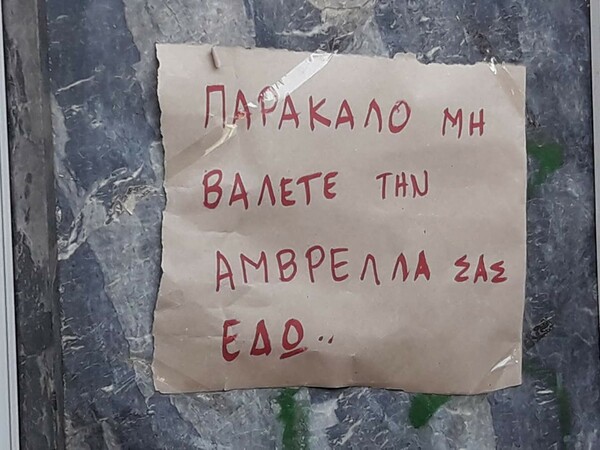 ΠΑΡΑΚΑΛΟ ΜΗ
ΒΑΛΕΤΕ ΤΗΝ
ΑΜΒΡΕΛΛΑ ΣΑΣ
ΕΔΩ..